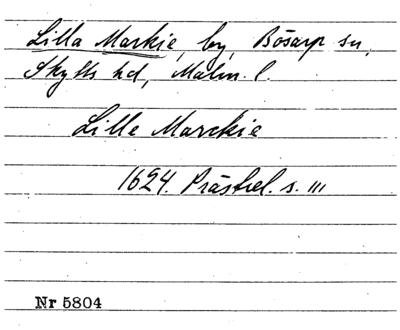 Lilla Markie, by, Bösarp sn,
Skytts hd, Malm. l.
Lille Marckie
1624. Prästrel. s. 111
Nr 5804